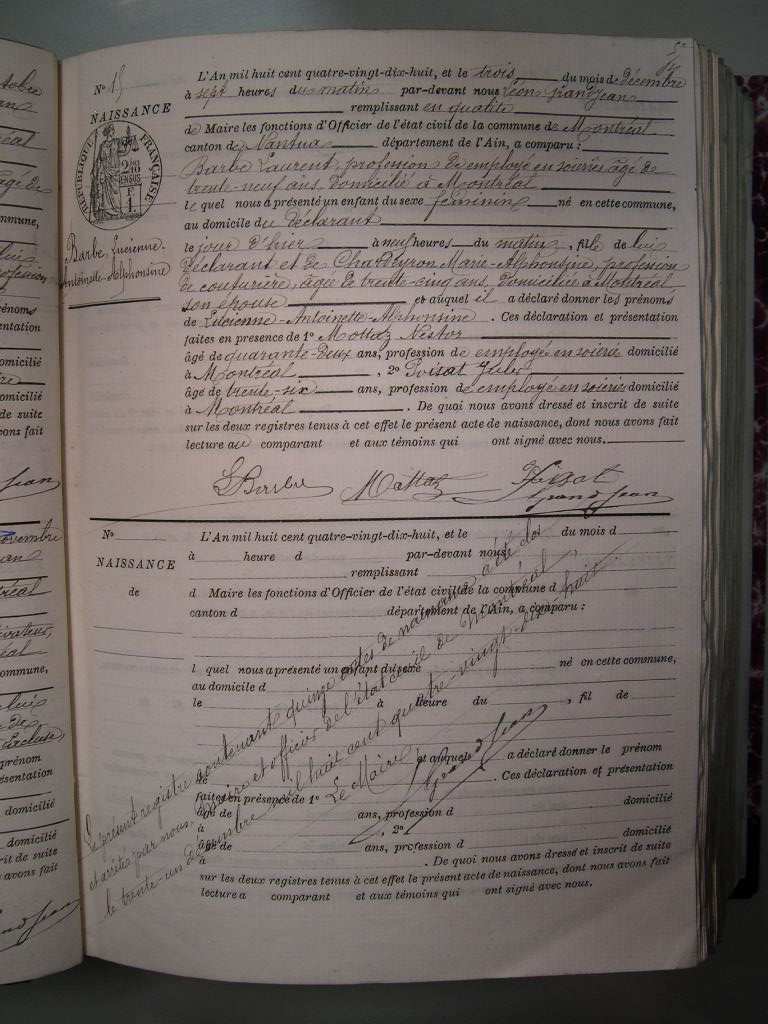 N° 15
NAISSANCE
RÉPUBLIQUE FRANÇAISE
Barbe, Lucienne-
Antoinette-Alphonsine
L'An mil huit cent quatre-vingt-dix-huit, et le trois du mois de décembre
à sept heures du matin par-devant nous Léon Grandjean
remplissant en qualité
de Maire les fonctions d'Officier de l'état civil de la commune de Montréal
canton de Nantua département de l'Ain, a comparu :
Barbe Laurent, profession de employé en soieries âgé de
trente-neuf ans, domicilié à Montréal
le quel nous a présenté un enfant du sexe féminin né en cette commune,
au domicile du déclarant
le jour d'hier à neuf heures du matin, fille de lui
déclarant et de Marie-Alphonsine, profession
de couturière, âgée de trente-cinq ans, domiciliée à Montréal,
son épouse et auquel il a déclaré donner les prénoms
de Lucienne-Antoinette-Alphonsine. Ces déclaration et présentation
faites en présence de 1° Mottaz Nestor
âgé de quarante-deux ans, profession de employé en soierie domicilié
à Montréal, 2° Poisat Jules
âgé de trente-six ans, profession de employé en soieries domicilié
à Montréal. De quoi nous avons dressé et inscrit de suite
sur les deux registres tenus à cet effet le présent acte de naissance, dont nous avons fait
lecture au comparant et aux témoins qui ont signé avec nous.
L Barbe Mottaz Poisat
Grandjean
N° L'An mil huit cent quatre-vingt-dix-huit, et le du mois d
NAISSANCE
de
à heure d par-devant nous
remplissant
d Maire les fonctions d'Officier de l'état civil de la commune d
canton d département de l'Ain, a comparu :
l quel nous a présenté un enfant du sexe né en cette commune,
au domicile d
le à heure du , fil de
et auquel a déclaré donner le prénom
de . Ces déclaration et présentation
faites en présence de 1°
âgé de ans, profession d domicilié
à , 2°
âgé de ans, profession d domicilié
à . De quoi nous avons dressé et inscrit de suite
sur les deux registres tenus à cet effet le présent acte de naissance, dont nous avons fait
lecture a comparant et aux témoins qui ont signé avec nous.
Le présent registre contenant quinze actes de naissance a été clos
et arrêté par nous, Maire et officier de l'état civil de Montréal,
le trente-un Décembre mil huit cent quatre-vingt-dix-huit.
Le Maire,
Grandjean